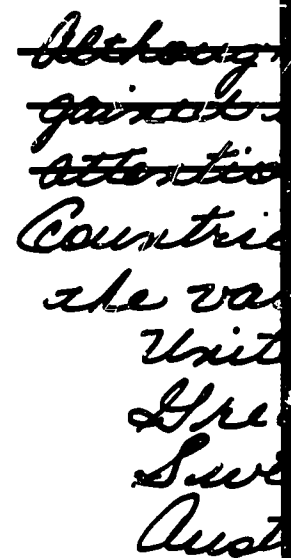 Althoug
gained
attentio
Countrie
the va
Unit
Gre
Swe
Aust